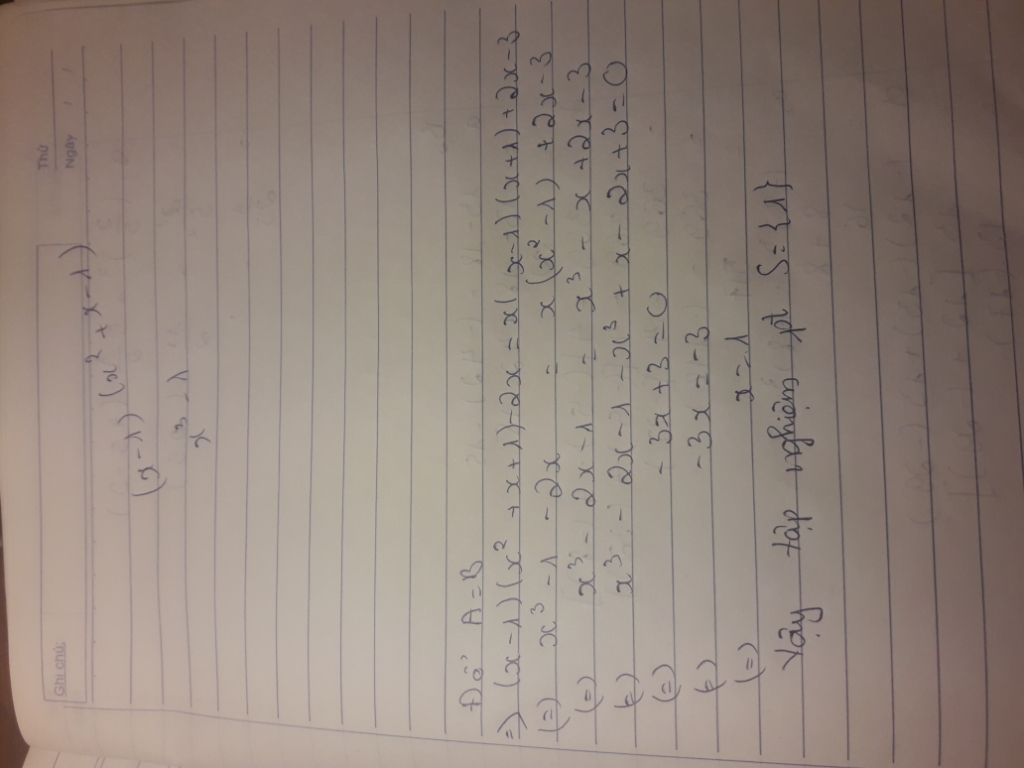 Ghi chú
Thứ
Ngày
(x-1) (x² + x - 1)
x³ - 1
Để A=B
=) (x-1)(x² + x+1)-2x = x(x-1)(x+1)+2x-3
(=) x³ -1 - 2x = x(x²-1) + 2x-3
(=) x³ - 2x -1 = x³ - x +2x-3
(=) x³ - 2x -1 -x³ + x - 2x+3=0
(=) -3x+3=0
(=) -3x = -3
(=) x=1
Vậy tập nghiệm pt S={1}